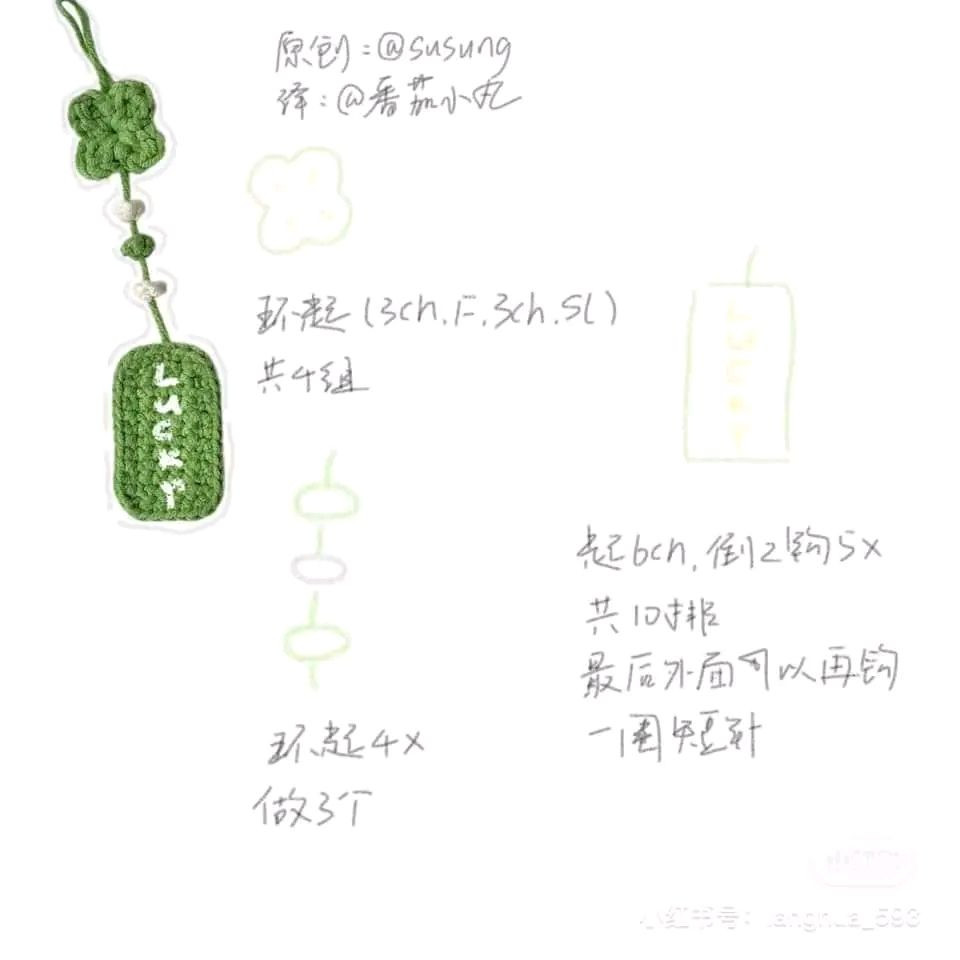 原创:@susung
译:@番茄小丸
环起(3ch.F.3ch.sl)
共4组
LUCKY
LUCKY
起6ch,倒2钩5x
共10排
最后外面可以再钩
一圈短针
环起4x
做3个
小红书